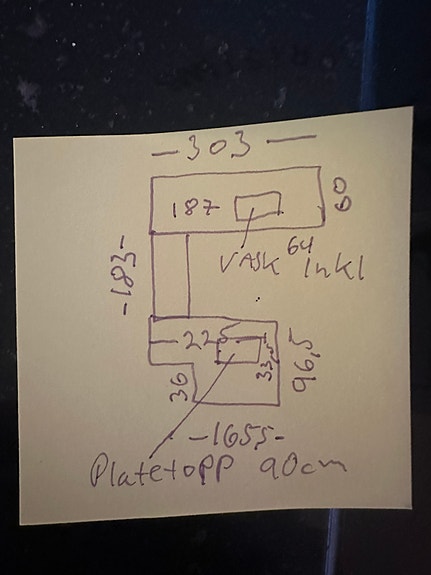 -303-
187
60
VASK 64 Inkl
-183-
-225-
33,5
96,5
36
-1655-
Platetopp 90cm